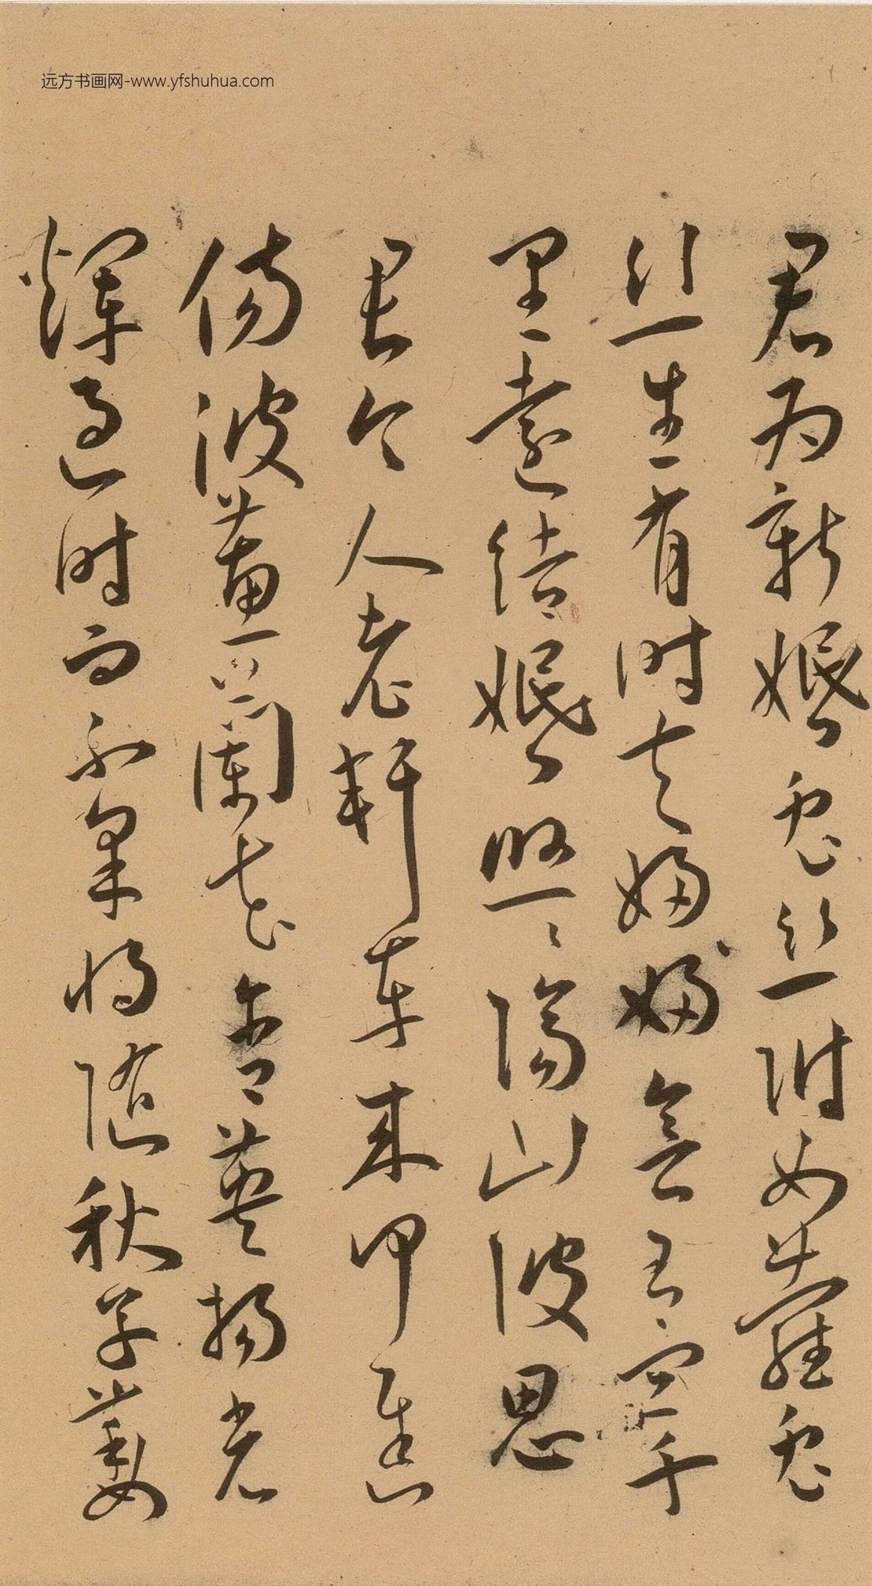 远方书画网-www.yfshuhua.com
君为新婚兔丝附女蘿兔
丝生有时夫婦婦會有宜千
里遠结婚悠〻隔山陂思
君令人老軒車来何遲
傷彼蕙蘭花含英揚光
輝過时而不采将随秋草萎